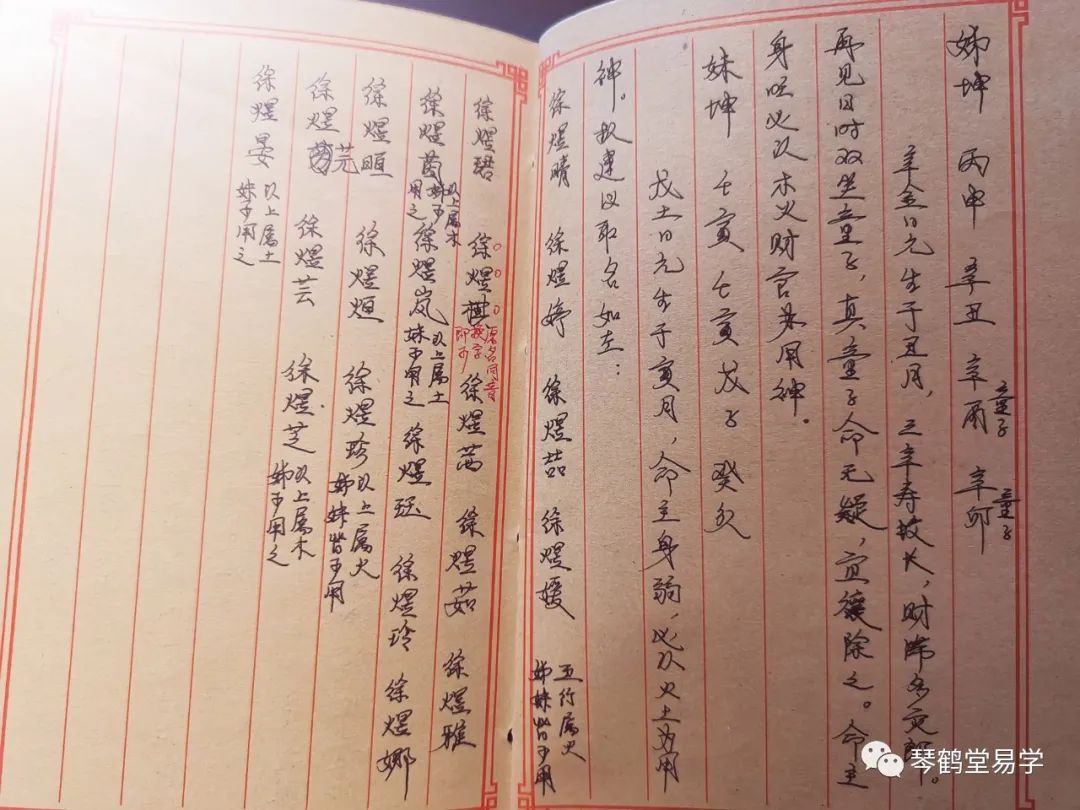 姊坤 丙申 辛丑 辛酉 辛卯
童子
童子
辛金日元生于丑月，三辛寿故长，财
再见日时双坐童子，真童子命无疑，宜禳除之。命主
身旺必以木火财官为用神。
妹坤 壬寅 壬寅 戊子 癸亥
戊土日元生于寅月，命主身弱，必以火土为用
神。故建议取名如左：
徐煜晴 徐煜婷 徐煜喆 徐煜媛
五行属火
姊妹皆可用
徐煜珺 徐煜 徐煜茜 徐煜茹 徐煜雅
原名同音
换字
即可
徐煜茵
以上属木
姊可用之
徐煜岚
以上属土
妹可用之
徐煜珏 徐煜玲 徐煜娜
徐煜晅 徐煜烜 徐煜珍
以上属火
姊妹皆可用
徐煜芫 徐煜芸 徐煜芝
以上属木
姊可用之
徐煜晏
以上属土
妹可用之
琴鹤堂易学